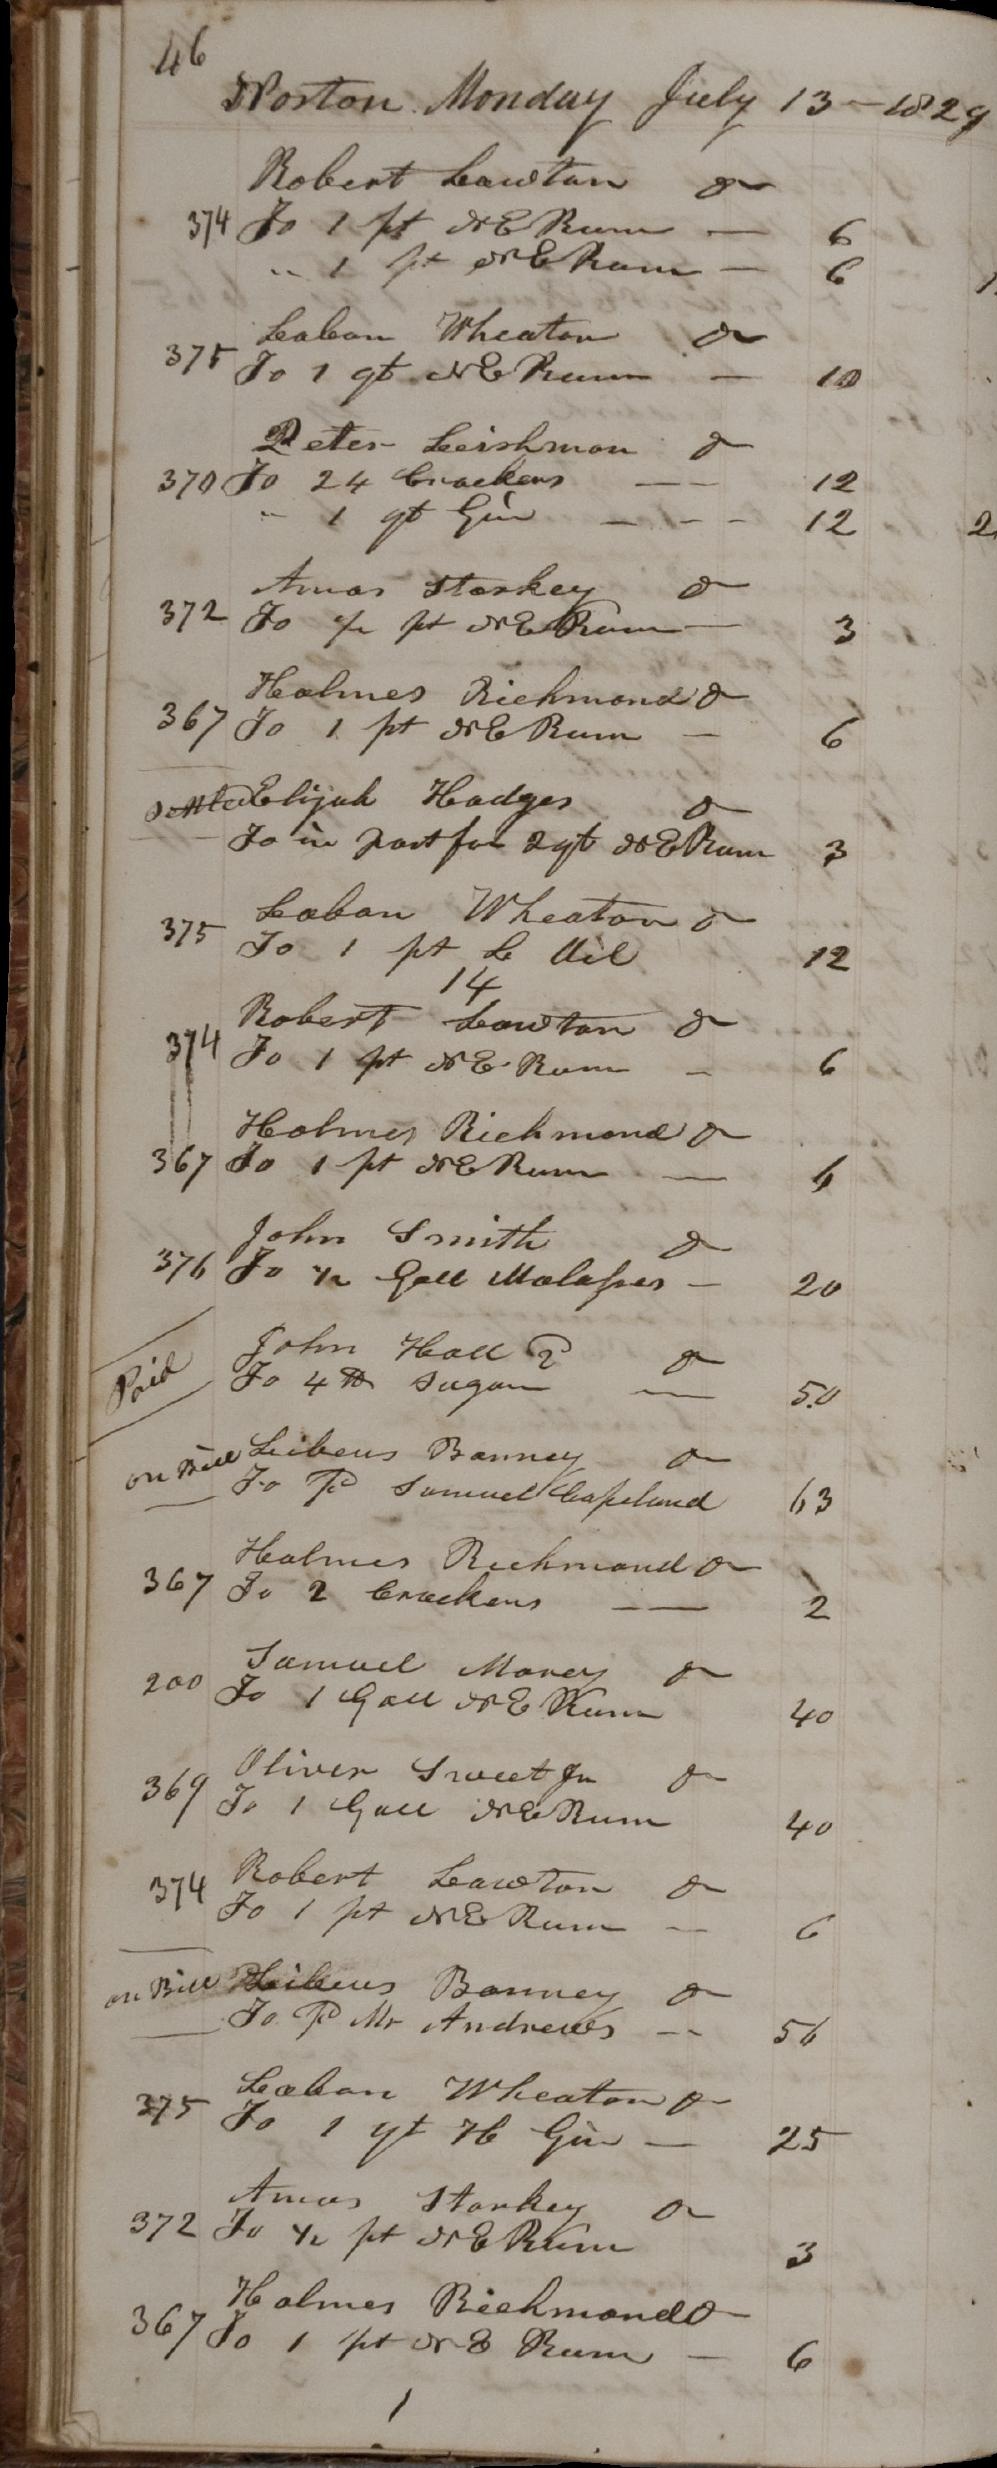 46
Norton Monday July 13 - 1829
Robert Lawton Dr
374 To 1 pt N E Rum — 6
" 1 pt N E Rum — 6
Laban Wheaton Dr
375 To 1 qt N E Rum — 10
Peter Leishman Dr
370 To 24 Crackers — — 12
" 1 qt Gin — - - 12
Amos Starkey Dr
372 To 1/2 pt N E Rum — 3
Holmes Richmond Dr
367 To 1 pt N E Rum — 6
Settled Elijah Hodges Dr
To in part for 2 qt N E Rum 3
Laban Wheaton Dr
375 To 1 pt L Oil 12
14
Robert Lawton Dr
374 To 1 pt N E Rum - 6
Holmes Richmond Dr
367 To 1 pt N E Rum — 6
John Smith Dr
376 To 1/2 Gall Molasses - 20
John Hall 2 Dr
Paid To 4 lb Sugar — 50
on Bill Lebeus Bonney Dr
To Pd Samuel Copeland 63
Holmes Richmond Dr
367 To 2 Crackers — 2
Samuel Morey Dr
200 To 1 Gall N E Rum 40
Oliver Sweet Jr Dr
369 To 1 Gall N E Rum 40
Robert Lawton Dr
374 To 1 pt N E Rum — 6
on Bill Lebeus Bonney Dr
To Pd Mr Andrews -- 56
Laban Wheaton Dr
375 To 1 qt H Gin — 25
Amos Starkey Dr
372 To 1/2 pt N E Rum 3
Holmes Richmond Dr
367 To 1 pt N E Rum — 6
1